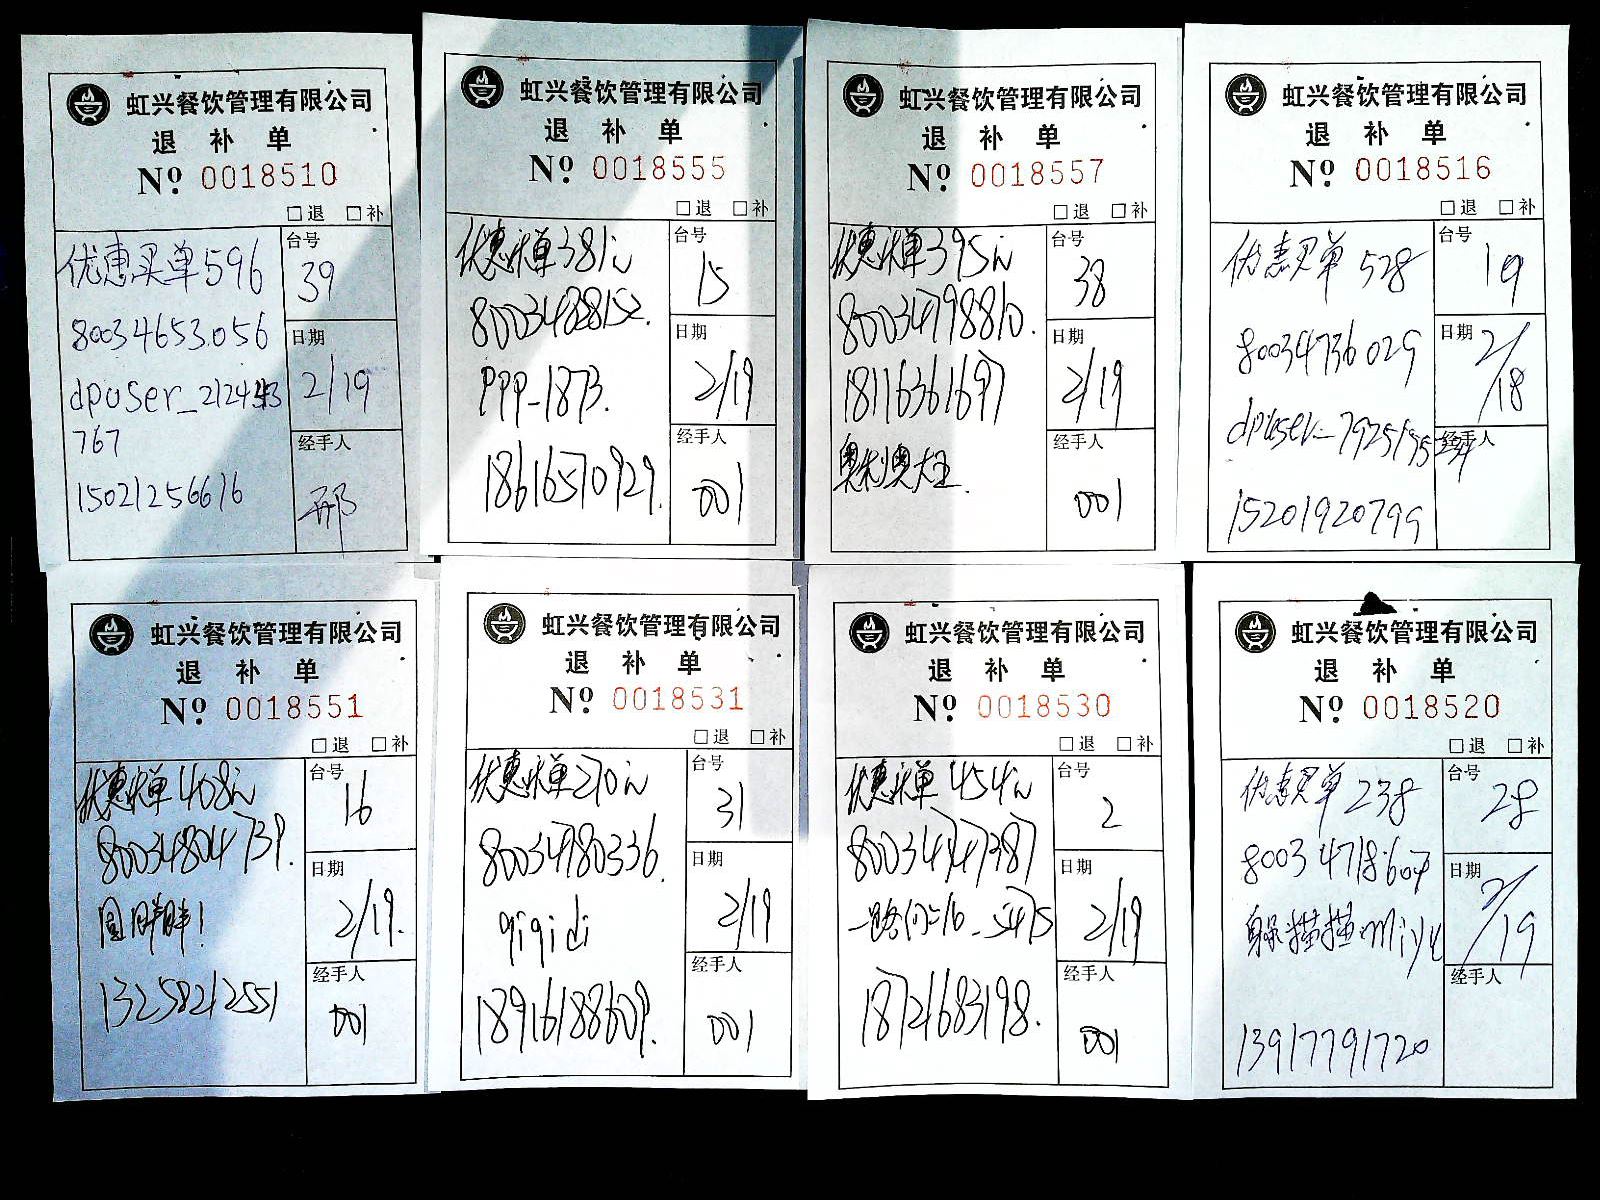 虹兴餐饮管理有限公司
退 补 单
Nº 0018510
□退 □补
优惠买单596
80034653056
dpuser_212443
767
15021256616
台号
39
日期
2/19
经手人
邢
虹兴餐饮管理有限公司
退 补 单
Nº 0018555
□退 □补
优惠买单381元
80034828152.
PPP-1873.
18616570929.
台号
15
日期
2/19
经手人
001
虹兴餐饮管理有限公司
退 补 单
Nº 0018557
□退 □补
优惠买单395元
80034798810.
18116361697
奥利奥大王.
台号
38
日期
2/19
经手人
001
虹兴餐饮管理有限公司
退 补 单
Nº 0018516
□退 □补
优惠买单 528
80034736029
dpuser_7925195
15201920799
台号
19
日期
2/18
经手人
虹兴餐饮管理有限公司
退 补 单
Nº 0018551
□退 □补
优惠买单408元
80034804739.
圆胖胖!
13258212551
台号
16
日期
2/19.
经手人
001
虹兴餐饮管理有限公司
退 补 单
Nº 0018531
□退 □补
优惠买单270元
80034780336.
qiqidi
18916188609.
台号
31
日期
2/19
经手人
001
虹兴餐饮管理有限公司
退 补 单
Nº 0018530
□退 □补
优惠买单454元
80034747387
18721683198.
台号
2
日期
2/19
经手人
001
虹兴餐饮管理有限公司
退 补 单
Nº 0018520
□退 □补
优惠买单 238
80034718607
躲猫猫miya
13917791720
台号
28
日期
2/19
经手人